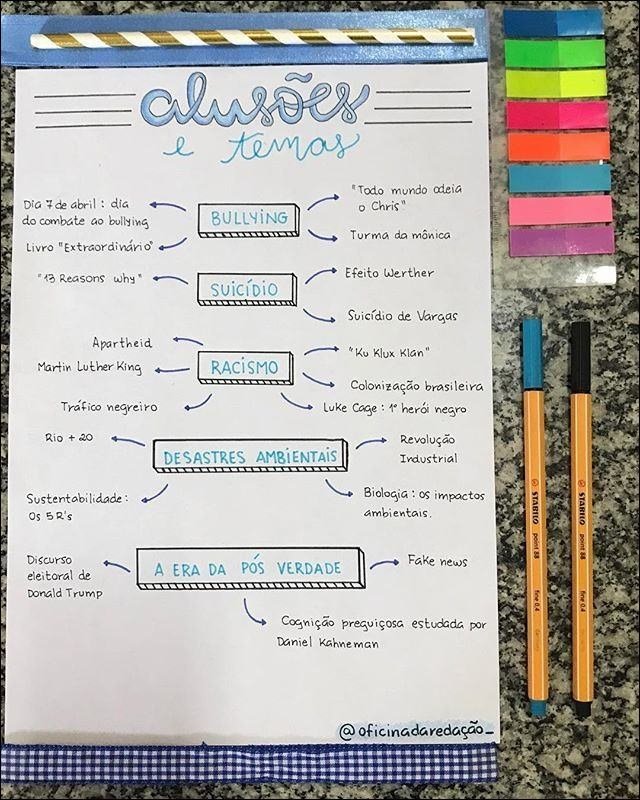 alusões
e temas
BULLYING
Dia 7 de abril : dia
do combate ao bullying
Livro "Extraordinário"
"Todo mundo odeia
o Chris"
Turma da mônica
SUICÍDIO
"13 Reasons why"
Efeito Werther
Suicídio de Vargas
RACISMO
Apartheid
Martin Luther King
Tráfico negreiro
"Ku Klux Klan"
Colonização brasileira
Luke Cage : 1º herói negro
DESASTRES AMBIENTAIS
Rio + 20
Sustentabilidade :
Os 5 R's
Revolução
Industrial
Biologia : os impactos
ambientais.
A ERA DA PÓS VERDADE
Discurso
eleitoral de
Donald Trump
Fake news
Cognição preguiçosa estudada por
Daniel Kahneman
@oficinadaredação_
STABILO
point 88
fine 0,4
STABILO
point 88
fine 0,4